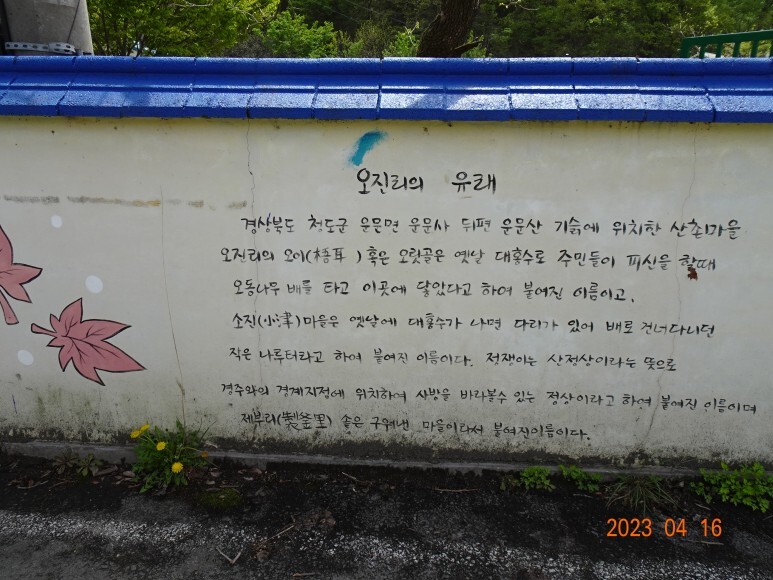 오진리의 유래
경상북도 청도군 운문면 운문사 뒤편 운문산 기슭에 위치한 산촌마을
오진리의 오이(梧耳) 혹은 오릿골은 옛날 대홍수로 주민들이 피신을 할때
오동나무 배를 타고 이곳에 닿았다고 하여 붙여진 이름이고.
소진(小津)마을은 옛날에 대홍수가 나면 다리가 있어 배로 건너다니던
작은 나루터라고 하여 붙여진 이름이다. 정쟁이는 산정상이라는 뜻으로
경주와의 경계지점에 위치하여 사방을 바라볼수 있는 정상이라고 하여 붙여진 이름이며
제부리(製釜里) 솥은 구워낸 마을이라서 붙여진이름이다.
2023 04 16